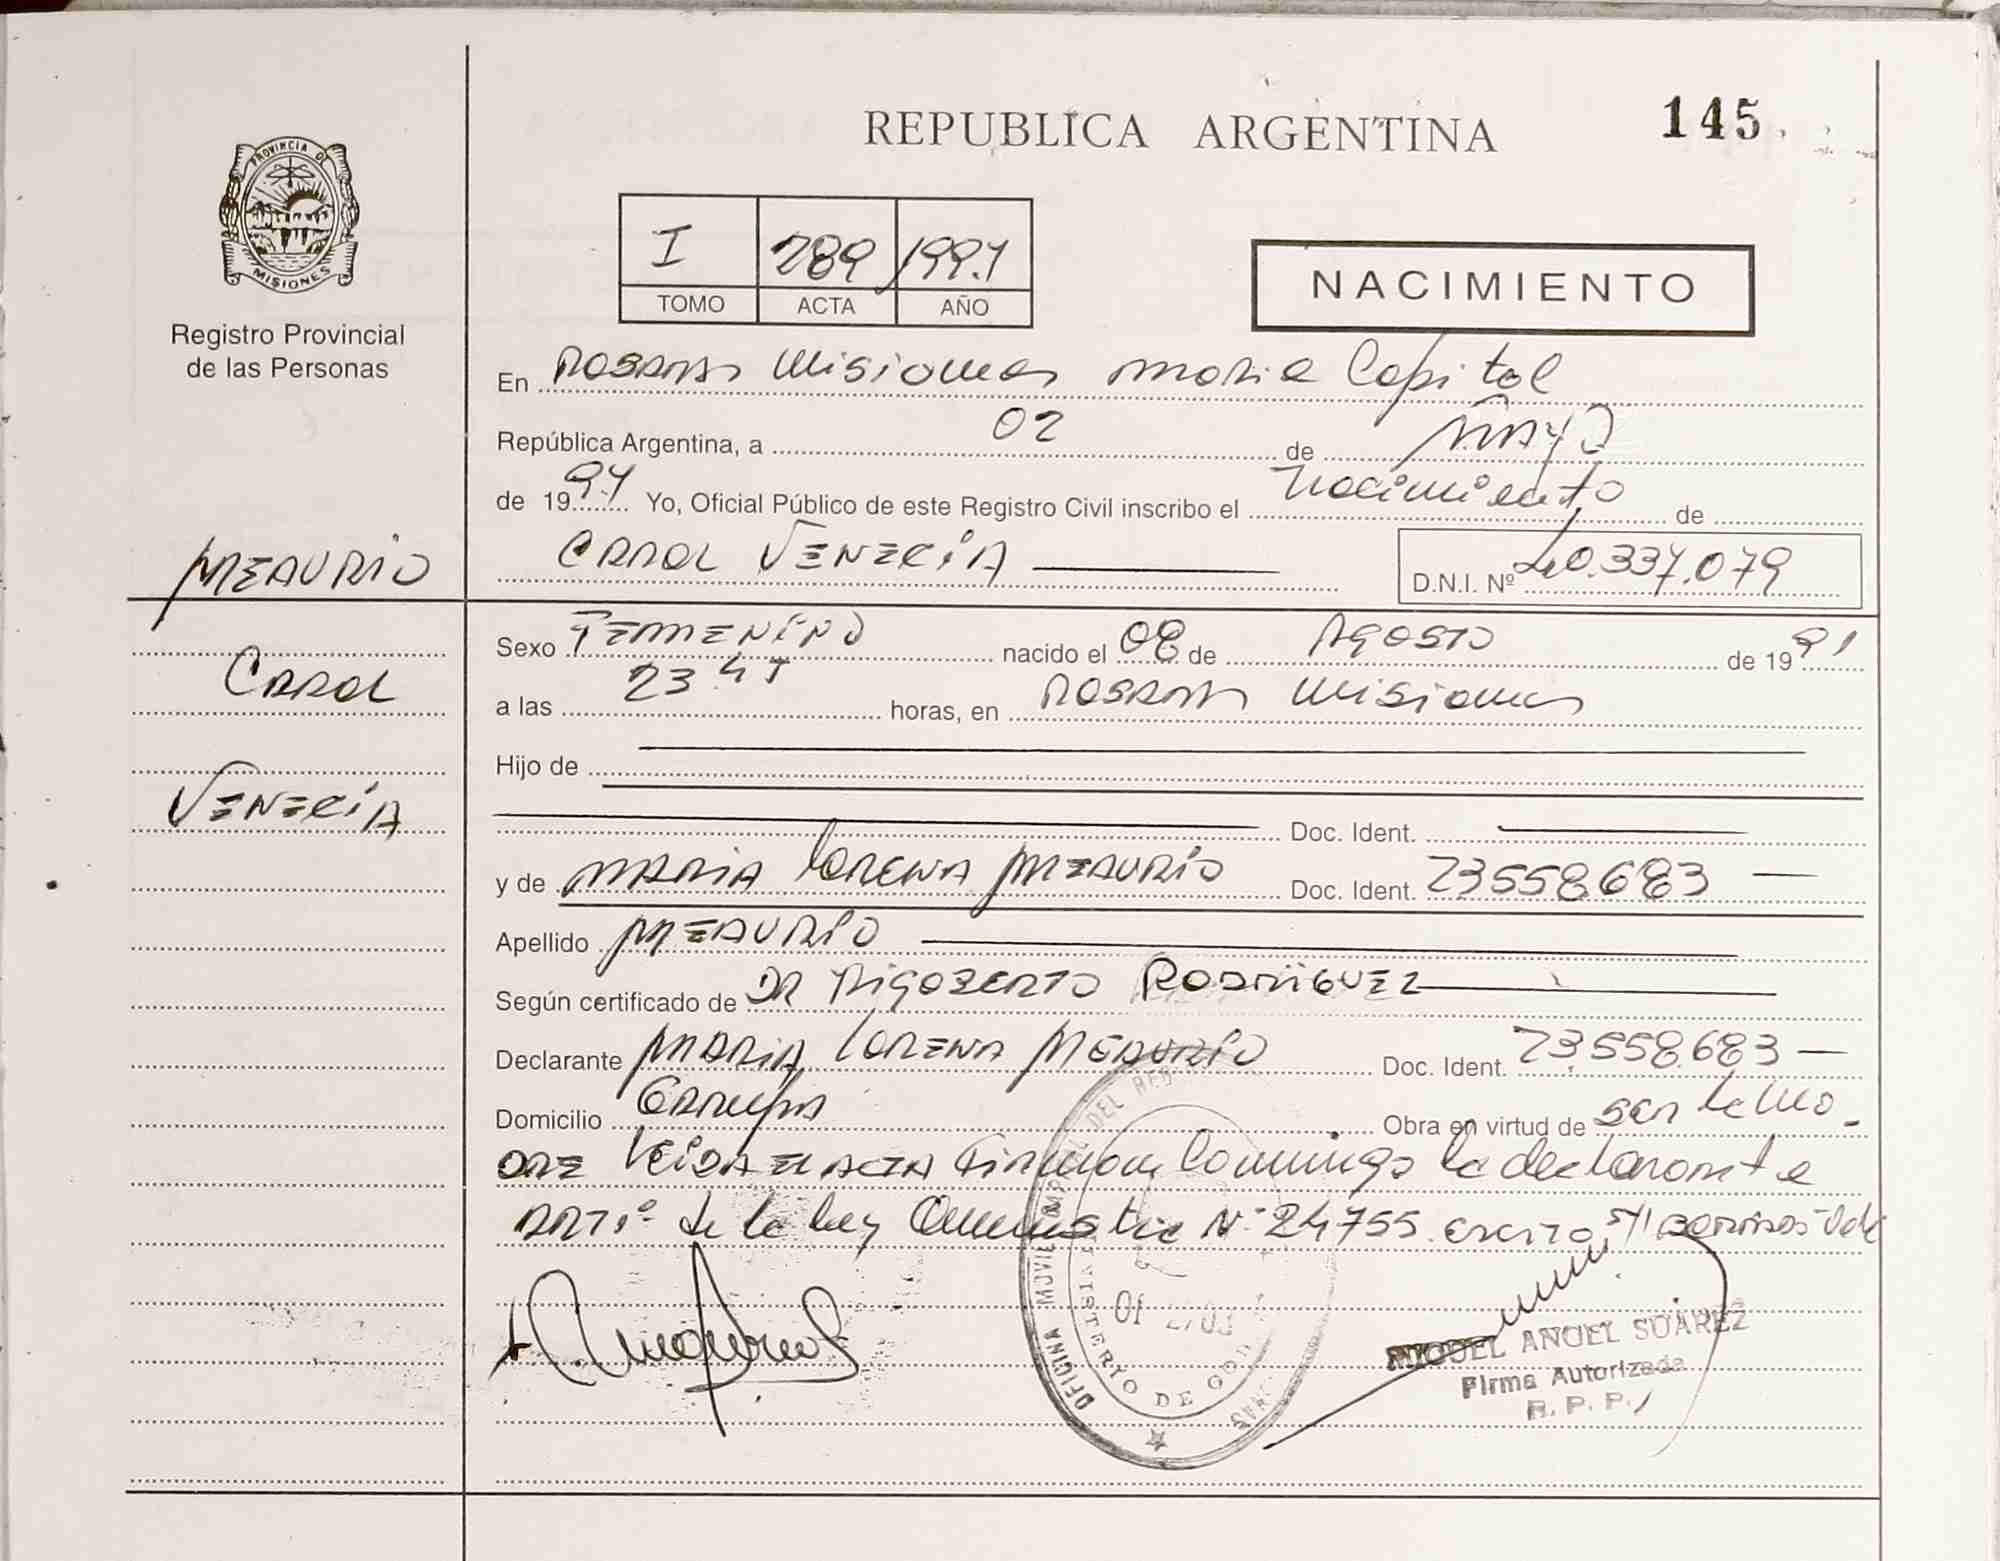 REPUBLICA ARGENTINA
145
PROVINCIA D
MISIONES
Registro Provincial
de las Personas
I 289 1997
TOMO ACTA AÑO
NACIMIENTO
En Posadas Misiones Capital
República Argentina, a 02 de MAYO
de 1997 Yo, Oficial Público de este Registro Civil inscribo el Nacimiento de
CAROL VENECIA D.N.I. Nº 40.337.079
MEAURIO
CAROL
VENECIA
Sexo FEMENINO nacido el 08 de AGOSTO de 1991
a las 23 45 horas, en POSADAS Misiones
Hijo de
Doc. Ident.
y de MARIA LORENA MEAURIO Doc. Ident. 23558683
Apellido MEAURIO
Según certificado de DR RIGOBERTO RODRIGUEZ
Declarante MARIA LORENA MEAURIO Doc. Ident. 23.558.683
Domicilio GARUPA Obra en virtud de
LEIDA EL ACTA Firman Conmigo la declarante
ART 1º de la ley Nº 24755
OFICINA MOVIL DEL REG
MINISTERIO DE GOB
MIGUEL ANGEL SUAREZ
Firma Autorizada
R. P. P.